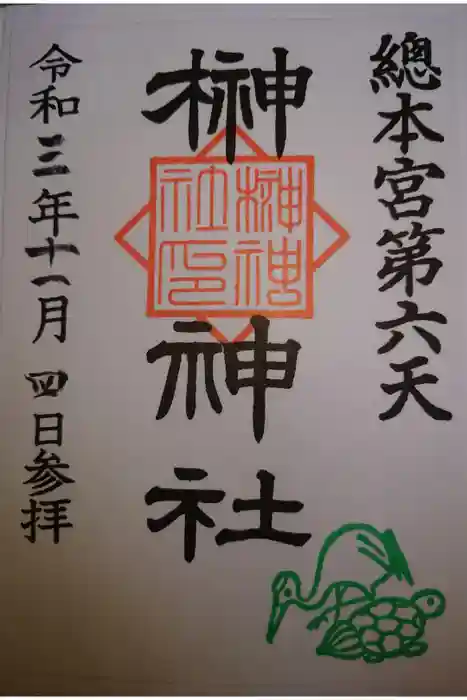 總本宮第六天
榊神社
榊神社印
令和三年十一月四日参拝